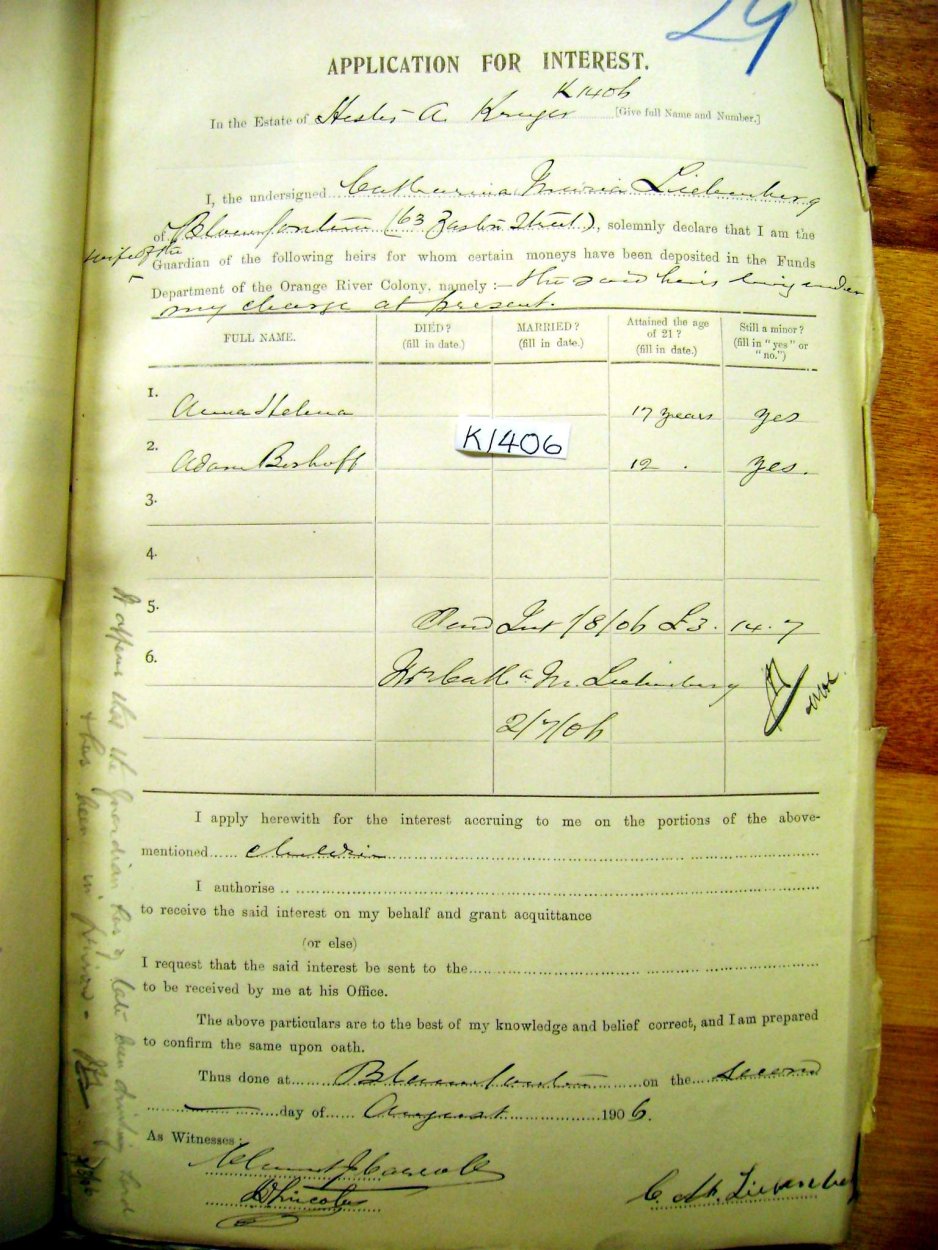 29
APPLICATION FOR INTEREST.
K1406
In the Estate of Hester A. Kruger [Give full Name and Number.]
I, the undersigned Catharina Maria Liebenberg
of Bloemfontein (63 Zastron Street), solemnly declare that I am the
wife of the
Guardian of the following heirs for whom certain moneys have been deposited in the Funds
Department of the Orange River Colony, namely :— the said heirs being under
my charge at present.
FULL NAME. DIED? (fill in date.) MARRIED? (fill in date.) Attained the age of 21? (fill in date.) Still a minor? (fill in "yes" or "no.")
1. Anna Helena 17 years yes
K1406
2. Adam Boshoff 12 . yes.
3.
4.
5. Int 1/8/06 £3. 14. 7
6. Cath a M. Liebenberg
2/7/06
I apply herewith for the interest accruing to me on the portions of the above-
mentioned children
I authorise
to receive the said interest on my behalf and grant acquittance
(or else)
I request that the said interest be sent to the
to be received by me at his Office.
The above particulars are to the best of my knowledge and belief correct, and I am prepared
to confirm the same upon oath.
Thus done at Bloemfontein on the second
day of August 1906.
As Witnesses:
C. M. Liebenberg
It appears that the Guardian has of late been drinking hard
& has been in prison.